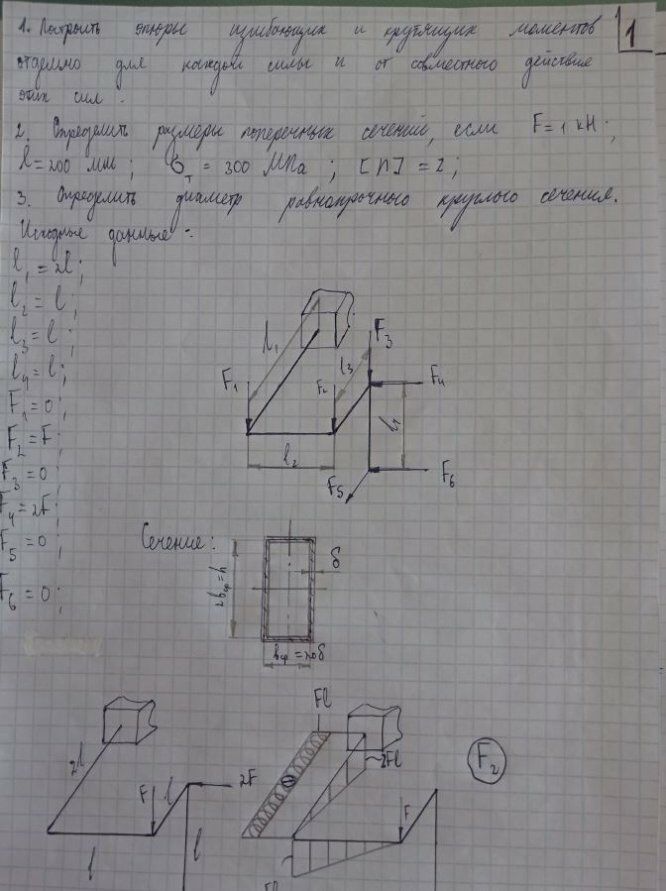 1. Построить эпюры изгибающих и крутящих моментов
1
отдельно для каждой силы и от совместного действия
этих сил.
2. Определить размеры поперечных сечений, если F = 1 кН;
l = 200 мм; σт = 300 МПа; [n] = 2;
3. Определить диаметр равнопрочного круглого сечения.
Исходные данные:
l1 = 2l;
l2 = l;
l3 = l;
l4 = l;
F1 = 0;
F2 = F;
F3 = 0
F4 = 2F;
F5 = 0;
F6 = 0;
l1
F3
l3
F1
F2
F4
l4
l2
F5
F6
Сечение:
δ
2bср = h
bср = 20δ
Fl
2l
F
l
2F
2Fl
F2
F
l
l
Fl